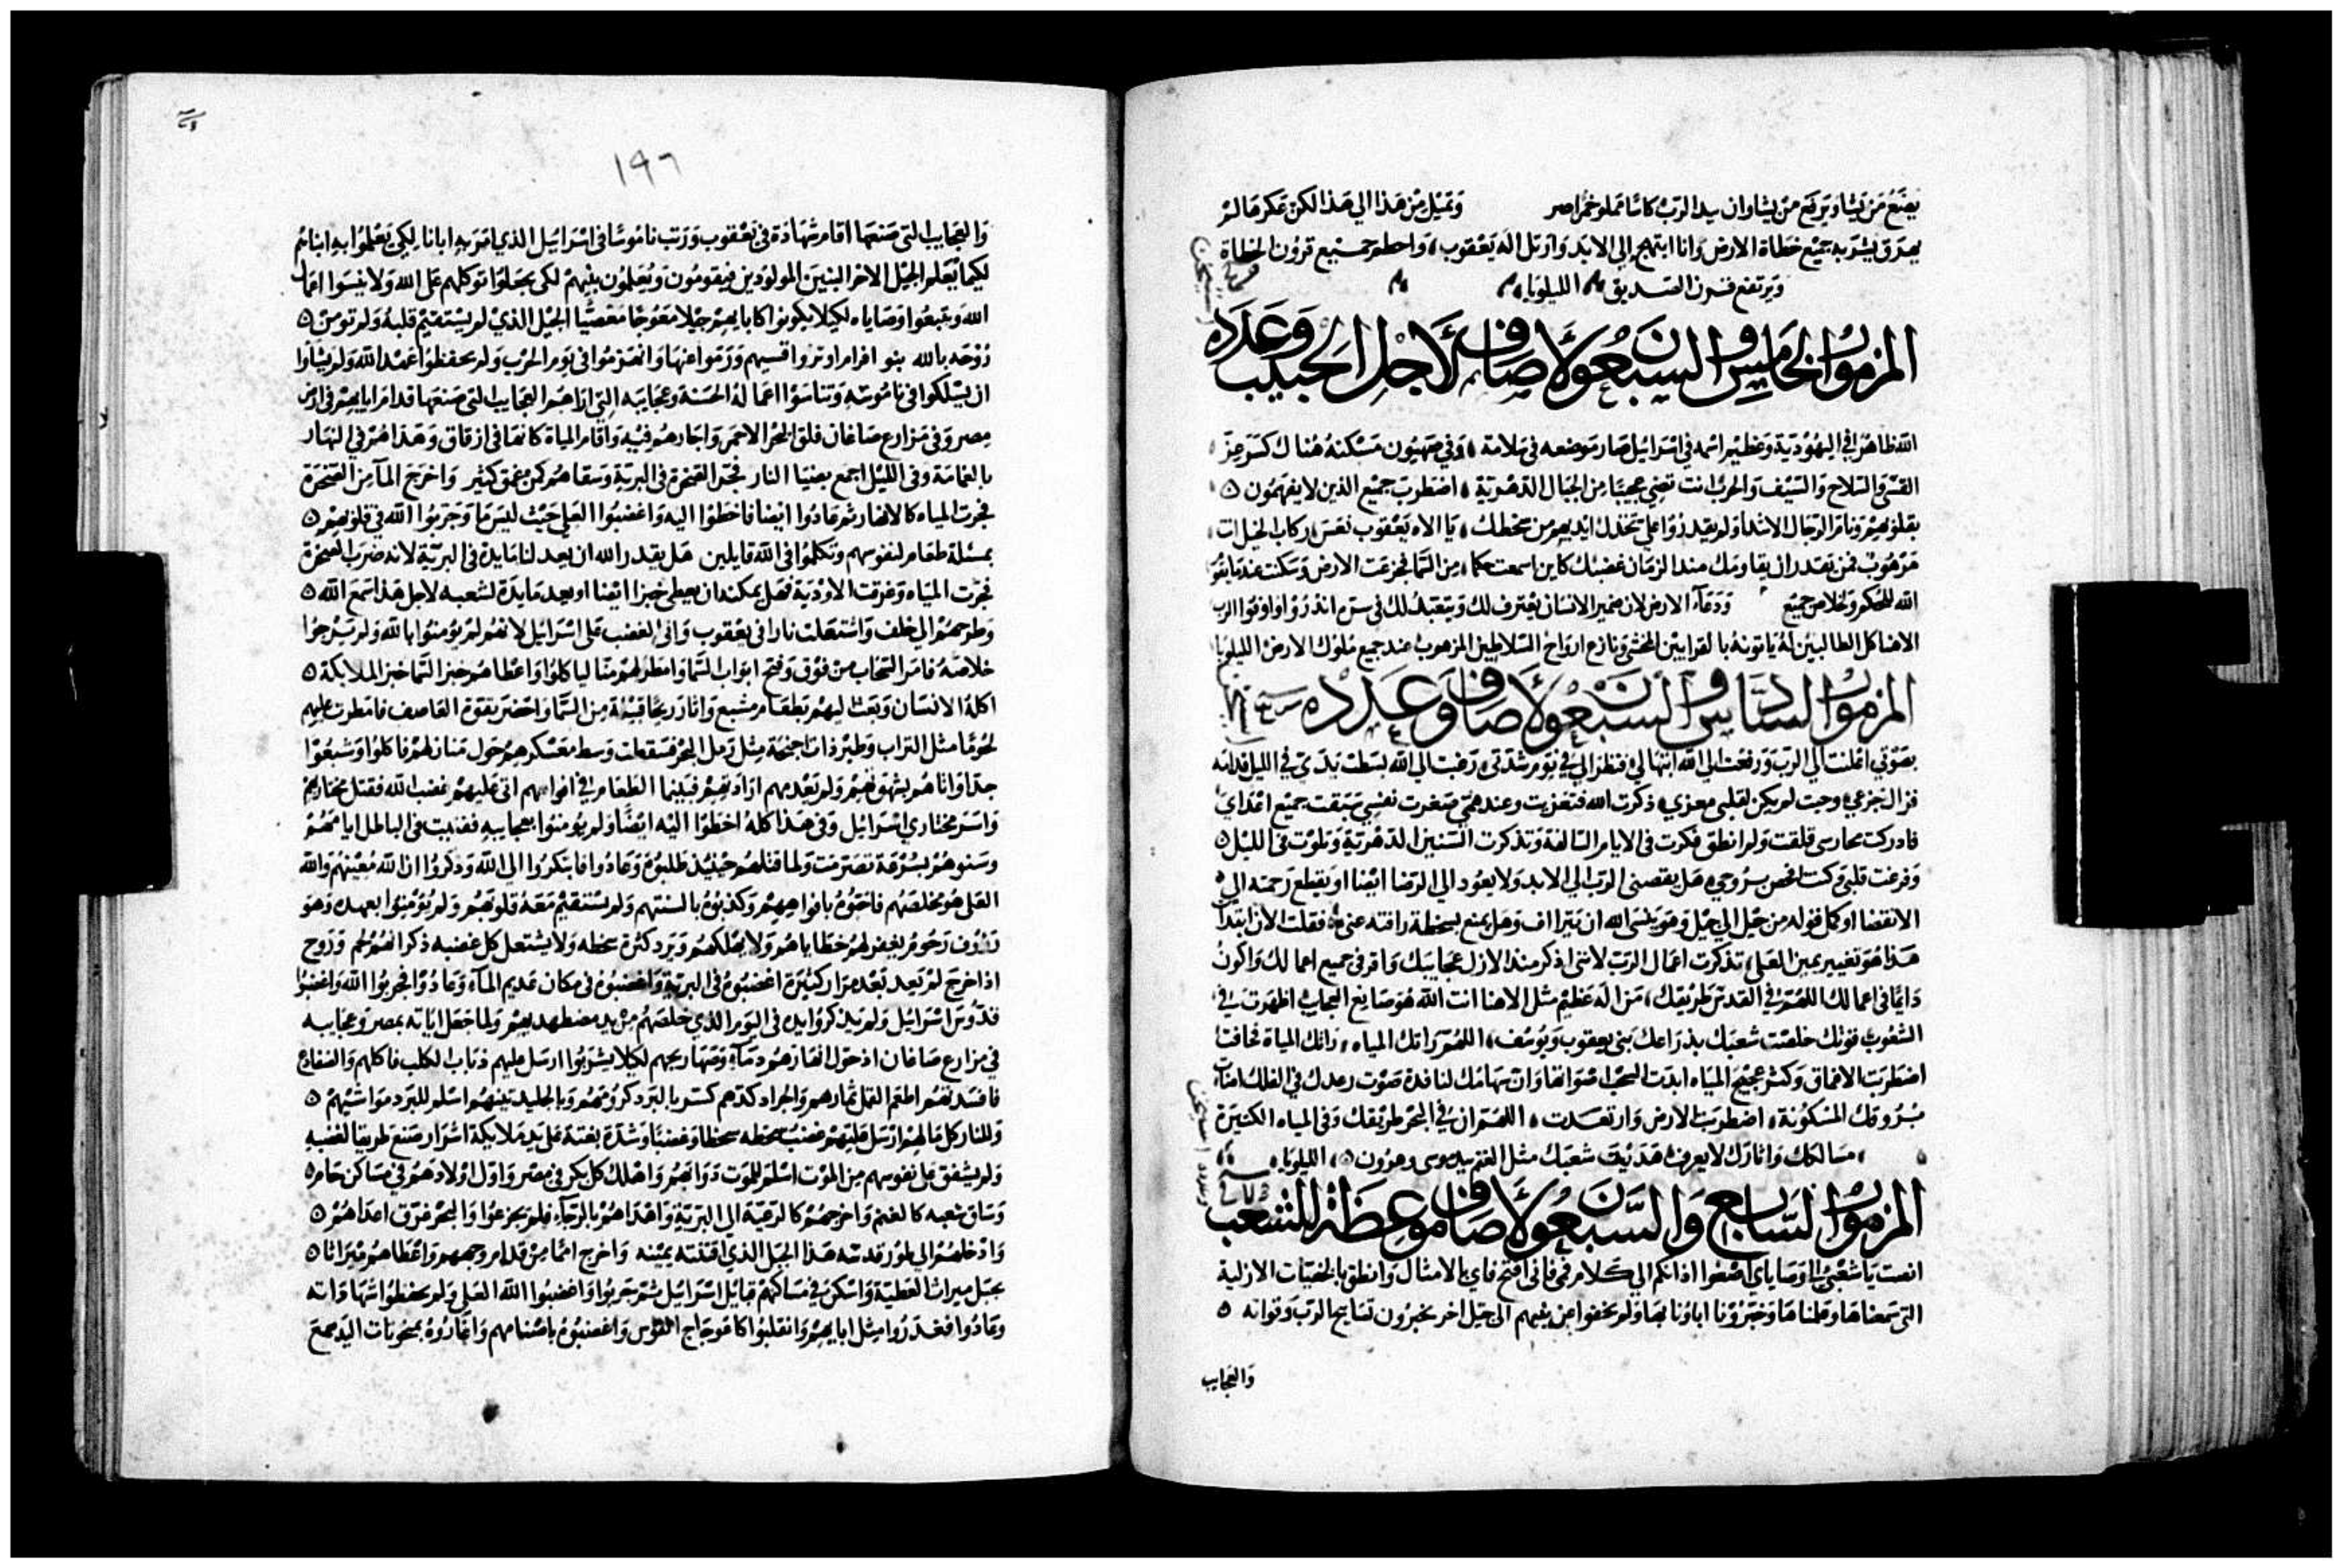 يضع من يشا ويرفع من يشا وان بيد الرب كاسا مملو خمرا صر وتميل من هذا الي هذا لكن عكرها لم
يهرق يشربه جميع خطاة الارض وانا ابتهج الي الابد وارتل اله يعقوب واحطم جميع قرون الخطاة
ويرتفع قرن الصديق الليلويا
المزمور الخامس والسبعون لاصاف لاجل الحبيب وعدده
الله ظاهر في اليهودية وعظيم اسمه في اسرايل صار موضعه في سلامة وفي صهيون مسكنه هناك كسر عز
القسي والسلاح والسيف والحرب انت تضي عجيبا من الجبال الدهرية اضطرب جميع الذين لا يفهمون
بقلوبهم ونام الرجال الاشدا ولم يقدروا علي ايديهم من سخطك يا الاه يعقوب نعس ركاب الخيل انت
مرهوب فمن يقدر ان يقاومك منذ الزمان غضبك كاين اسمعت حكما من السما فجزعت الارض وسكنت عند ما يقوم
الله للحكم وخلاص جميع ودعاء الارض لان ضمير الانسان يعترف لك ويتعبد لك في انذروا واوفوا الرب
الاهنا كل الطالبين له ياتونه بالقرابين المخشي ونازع ارواح السلاطين المرهوب عند جميع ملوك الارض الليلويا
المزمور السادس والسبعون لاصاف وعدده
بصوتي اعلنت الي الرب ورفعت الي الله ابتهالي فنظر الي في يوم شدتي رغبت الي الله بسطت يدي في الليل قدامه
فزال جزعي وحيت لم يكن لقلبي معزي ذكرت الله فتعزيت وعند همي صغرت نفسي سبقت جميع اعداي
فادركت محارسي قلقت ولم انطق فكرت في الايام السالفة وتذكرت السنين الدهرية وتلوت في الليل
وفرغت قلبي وكنت افحص بروحي هل يقصني الرب الي الابد ولا يعود الي الرضا ايضا او يقطع رحمته الي
الانقضا او كمل قوله من جيل الي جيل وهو ينسي الله ان يتراف وهل يمنع بسخطه رافته عني فقلت الان ابتدا
هذا هو تغيير يمين العلي تذكرت اعمال الرب لانني اذكر منذ الازل عجايبك واقر في جميع اعمالك واكون
دايما في اعمالك اللهم في القدس طريقك من اله عظيم مثل الاهنا انت الله هو صانع العجايب اظهرت في
الشعوب قوتك خلصت شعبك بذراعك بني يعقوب ويوسف اللهم راتك المياه راتك المياة فخافت
اضطربت الاعماق وكثر عجيج المياه ابدت السحب اصواتها وان سهامك لنافدة صوت رعدك في الفلك اضات
بروقك المسكونة اضطربت الارض وارتعدت اللهم ان في البحر طريقك وفي المياه الكثيرة
مسالكك واثارك لا يعرف هديت شعبك مثل الغنم بيد موسي وهرون الليلويا
المزمور السابع والسبعون لاصاف موعظة للشعب
انصت يا شعبي الي وصاياي اصغوا اذانكم الي كلام فمي فاني افتح فاي بالامثال وانطق بالخفيات الازلية
التي سمعناها وعلمناها وخبرونا اباونا بها ولم يخفوا عن بنيهم الي جيل اخر يخبرون تسابيح الرب وقواته
والعجايب
١٩٦
والعجايب التي صنعها اقام شهادة في يعقوب ورتب ناموسا في اسرايل الذي امر به ابانا لكي يعلموا به ابناهم
لكيما يعلموا الجيل الاخر البنين المولودين فيقومون ويعلمون بنيهم لكي يجعلوا توكلهم على الله ولا ينسوا اعمال
الله ويتبعوا وصاياه لكيلا يكونوا كابايهم جيلا معوجا مغضبا الجيل الذي لم يستقيم قلبه ولم تومن
روحه بالله بنو افرام اوتروا قسيهم ورموا عنها وانهزموا في يوم الحرب ولم يحفظوا عهد الله ولم يشاوا
ان يسلكوا في ناموسه وتناسوا اعماله الحسنة وعجايبه التي اراهم العجايب التي صنعها قدام ابايهم في ارض
مصر وفي مزارع صاغان فلق البحر الاحمر واجازهم فيه واقام المياة كانها في ازقاق وهداهم في النهار
بالغمامة وفي الليل اجمع بضيا النار فجر الصخرة في البرية وسقاهم كمن عمق كثير واخرج الما من الصخرة
فجرت المياه كالانهار ثم عادوا ايضا فاخطوا اليه واغضبوا العلي حيث ليس ما وجربوا الله في قلوبهم
بمسلة طعام لنفوسهم وتكلموا في الله قايلين هل يقدر الله ان يعد لنا مايدة في البرية لانه ضرب الصخرة
فجرت المياه وغرقت الاودية فهل يمكنه ان يعطي خبزا ايضا او يعد مايدة لشعبه لاجل هذا سمع الله
وطرحهم الي خلف واشتعلت نارا في يعقوب واتي الغضب على اسرايل لانهم لم يومنوا بالله ولم يرجوا
خلاصه فامر السحاب من فوق وفتح ابواب السما وامطر لهم منا لياكلوا واعطاهم خبز السما خبز الملايكة
اكله الانسان وبعث اليهم بطعام مشبع واثار ريحا قبلة من السما واحضر بقوته العاصف فامطرت عليهم
لحوما مثل التراب وطير ذات اجنحة مثل رمل البحر فسقطت وسط معسكرهم حول منازلهم فاكلوا وشبعوا
جدا واتاهم بشهوتهم ولم يعدمهم ارادتهم فبينما الطعام في افواههم اتي عليهم غضب الله فقتل مختاريهم
واسر مختاري اسرايل وفي هذا كله اخطوا اليه ايضا ولم يومنوا بعجايبه ففنيت في الباطل ايامهم
وسنوهم بسرعة تصرمت ولما قتلهم حينيذ طلبوه وعادوا فابتكروا الي الله وذكروا ان الله معينهم والله
العلي هو مخلصهم فاحبوه بافواههم وكذبوه بالسنتهم ولم تستقيم معه قلوبهم ولم يومنوا بعهده وهو
رووف رحوم يغفر لهم خطاياهم ولا يهلكهم ويرد كثرة سخطه ولا يشتعل كل غضبه ذكر انهم لحم وروح
اذا خرج لم يعد بعد مرار كثيرة اغضبوه في البرية واغضبوه في مكان عديم الماء وعادوا فجربوا الله واغضبوا
قدوس اسرايل ولم يذكروا يده في اليوم الذي خلصهم من يد مضطهديهم ولما جعل اياته بمصر وعجايبه
في مزارع صاغان اذ حول انهارهم دماء وصهاريجهم لكيلا يشربوا ارسل عليهم ذباب الكلب فاكلهم والضفادع
فافسدتهم اطعم القمل ثمارهم والجراد كدهم كسر بالبرد كرومهم وبالجليد تينهم اسلم للبرد مواشيهم
وللنار كل مالهم ارسل عليهم غضب سخطه سخطا وغضبا وشدة بغتة على يد ملايكة اشرار صنع طريقا لغضبه
ولم يشفق على نفوسهم من الموت اسلم للموت دوابهم واهلك كل بكر في مصر واول اولادهم في مساكن حام
وساق شعبه كالغنم واخرجهم كالرعية الي البرية واهداهم بالرجاء فلم يجزعوا والبحر غرق اعداهم
وادخلهم الي طور قدسه هذا الجبل الذي اقتنته يمينه واخرج امما من قدام وجههم واعطاهم ميراثا
بحبل ميراث العطية واسكن في مساكنهم قبايل اسرايل ثم جربوا واغضبوا الله العلي ولم يحفظوا شهاداته
وعادوا فغدروا مثل ابايهم وانقلبوا كاعوجاج القوس واغضبوه باصنامهم واغاروه بمنحوتات اليد سمع